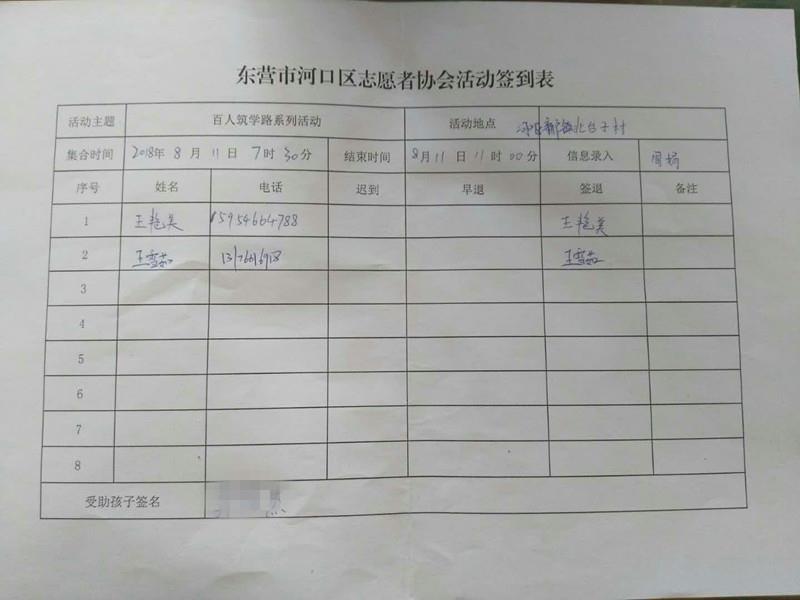 东营市河口区志愿者协会活动签到表
活动主题 百人筑学路系列活动 活动地点 河口区新户镇北台子村
集合时间 2018年8月11日7时30分 结束时间 8月11日11时00分 信息录入
序号 姓名 电话 迟到 早退 签退 备注
1 王艳美 15954664788 王艳美
2 王雪茹 王雪茹
3
4
5
6
7
8
受助孩子签名